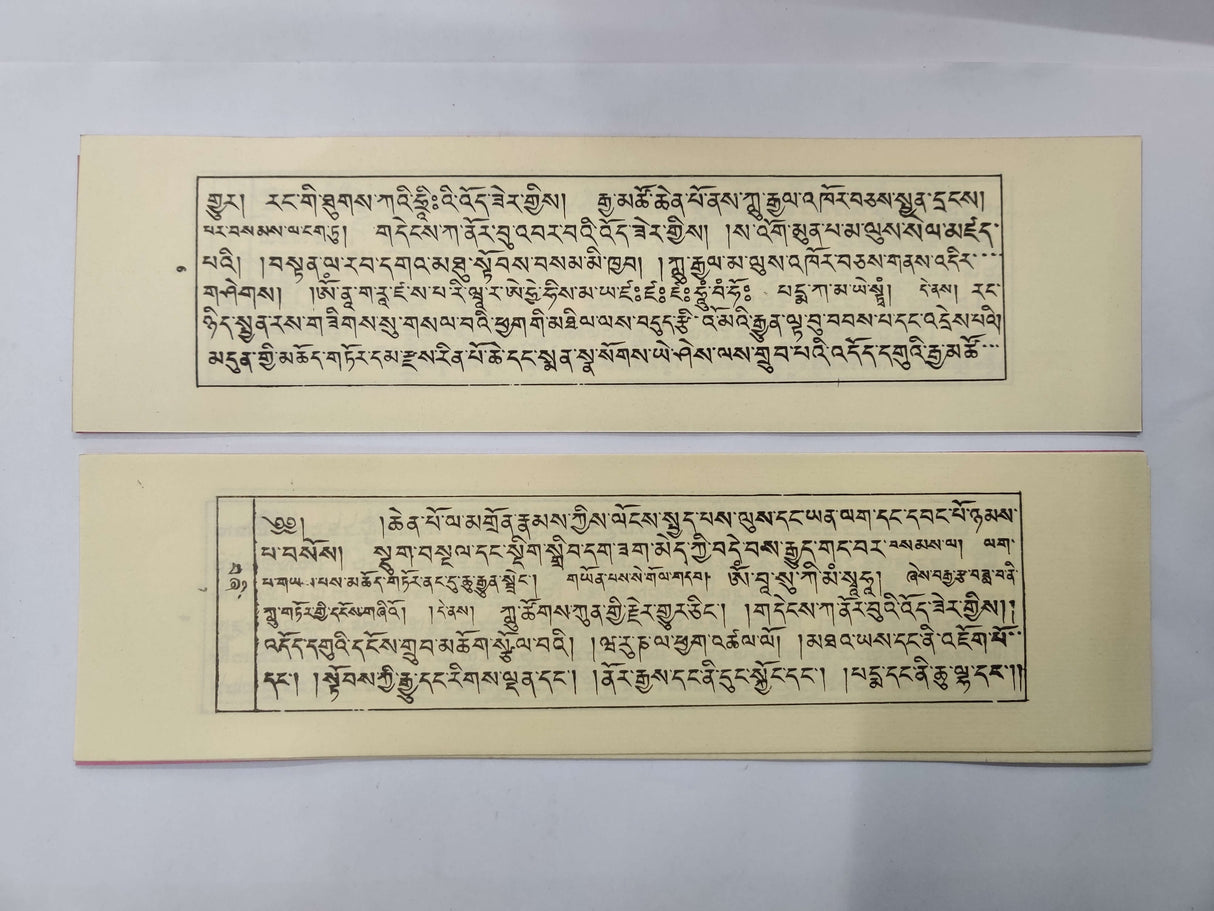 གྱུར། རང་གི་ཐུགས་ཀའི་ཧྲཱིཿའི་འོད་ཟེར་གྱིས། རྒྱ་མཚོ་ཆེན་པོ་ནས་ཀླུ་རྒྱལ་འཁོར་བཅས་སྤྱན་དྲངས།
པར་བསམས་ལ་ངག་ཏུ། གདེངས་ཀ་ནོར་བུ་འབར་བའི་འོད་ཟེར་གྱིས། །ས་འོག་མུན་པ་མ་ལུས་སེལ་མཛད་
པའི། །བསྟན་ལ་རབ་དགའ་མཐུ་སྟོབས་བསམ་མི་ཁྱབ། །ཀླུ་རྒྱལ་མ་ལུས་འཁོར་བཅས་གནས་འདིར་
གཤེགས། །ཨོཾ་ནཱ་ག་རཱ་ཛ་ས་པ་རི་ཝཱ་ར་ཨེ་ཧྱེ་ཧི་ས་མ་ཡ་ཛཿཛཿ ཛཿཧཱུྃ་བཾ་ཧོཿ པདྨ་ཀ་མ་ཡེ་སྟྭཾ། དེ་ནས། རང་
ཉིད་སྤྱན་རས་གཟིགས་སུ་གསལ་བའི་ཕྱག་གི་མཐིལ་ལས་བདུད་རྩི་འོ་མའི་རྒྱུན་ལྟ་བུ་བབས་པ་དང་འདྲེས་པའི།
མདུན་གྱི་མཆོད་གཏོར་དམ་རྫས་རིན་པོ་ཆེ་དང་སྨན་སྣ་སོགས་ཡེ་ཤེས་ལས་གྲུབ་པའི་འདོད་དགུའི་རྒྱ་མཚོ་
༄༅། །ཆེན་པོ་ལ་མགྲོན་རྣམས་ཀྱིས་ལོངས་སྤྱད་པས་ལུས་དང་ཡན་ལག་དང་དབང་པོ་ཉམས་
པ་བསོས། སྡུག་བསྔལ་དང་སྡིག་སྒྲིབ་དག་ཟག་མེད་ཀྱི་བདེ་བས་རྒྱུད་གང་བར་བསམས་ལ། ལག་
པ་གཡས་པས་མཆོད་གཏོར་ནང་དུ་ཆུ་རྒྱུན་སྦྲེང་། གཡོན་པས་སེ་གོལ་གདབ། ཨོཾ་བཱ་སུ་ཀི་མཾ་སྭཱཧཱ། ཞེས་བརྒྱ་རྩ་བཟླ་བ་ནི་
ཀླུ་གཏོར་གྱི་དངོས་གཞིའོ། །དེ་ནས། ཀླུ་ཚོགས་ཀུན་གྱི་རྗེར་གྱུར་ཅིང་། །གདེངས་ཀ་ནོར་བུའི་འོད་ཟེར་གྱིས།།
འདོད་དགུའི་དངོས་གྲུབ་མཆོག་སྩོལ་བའི། །ཝ་རུ་ཎ་ལ་ཕྱག་འཚལ་ལོ། །མཐའ་ཡས་དང་ནི་འཇོག་པོ་
དང་། །སྟོབས་ཀྱི་རྒྱུ་དང་རིགས་ལྡན་དང་། །ནོར་རྒྱས་དང་ནི་དུང་སྐྱོང་དང་། །པདྨ་དང་ནི་ཆུ་ལྷ་དང་།།